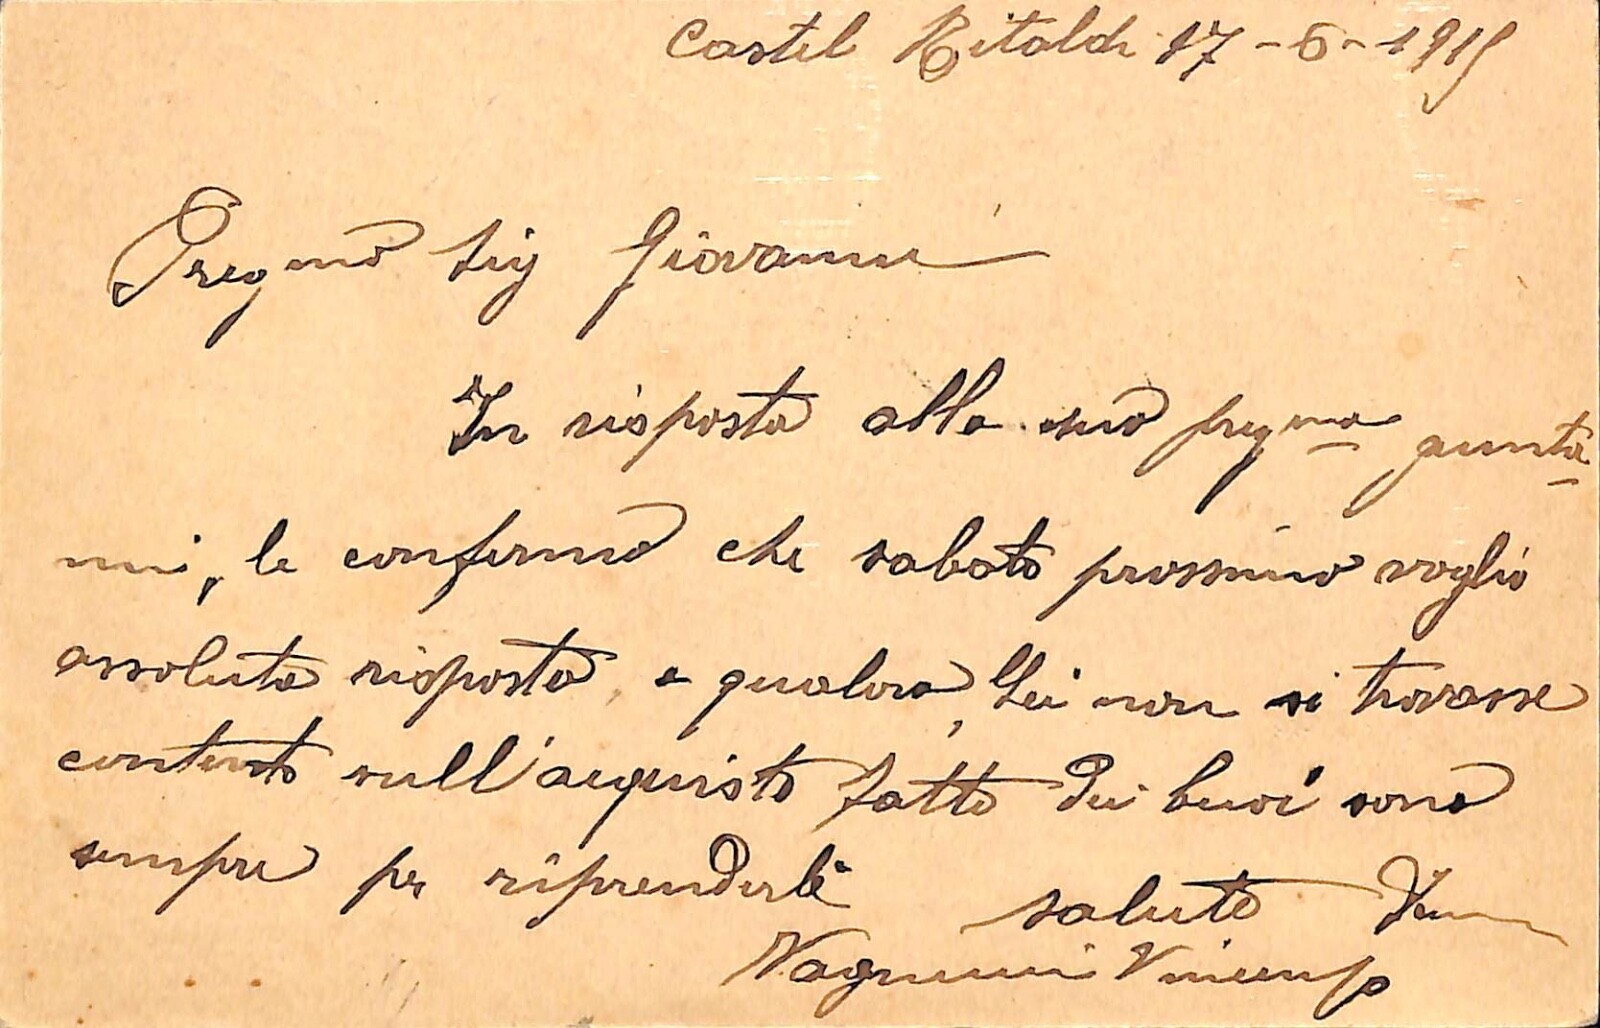 Castel Ritaldi 17-6-1915
Pregmo Sig Giovanni
In risposta alla sua pregma giunta
mi, le confermo che sabato prossimo voglio
assoluta risposta, e qualora, Lei non si trovasse
contento sull'acquisto fatto dei buoi sono
sempre per riprenderli
saluto
Vincenzo